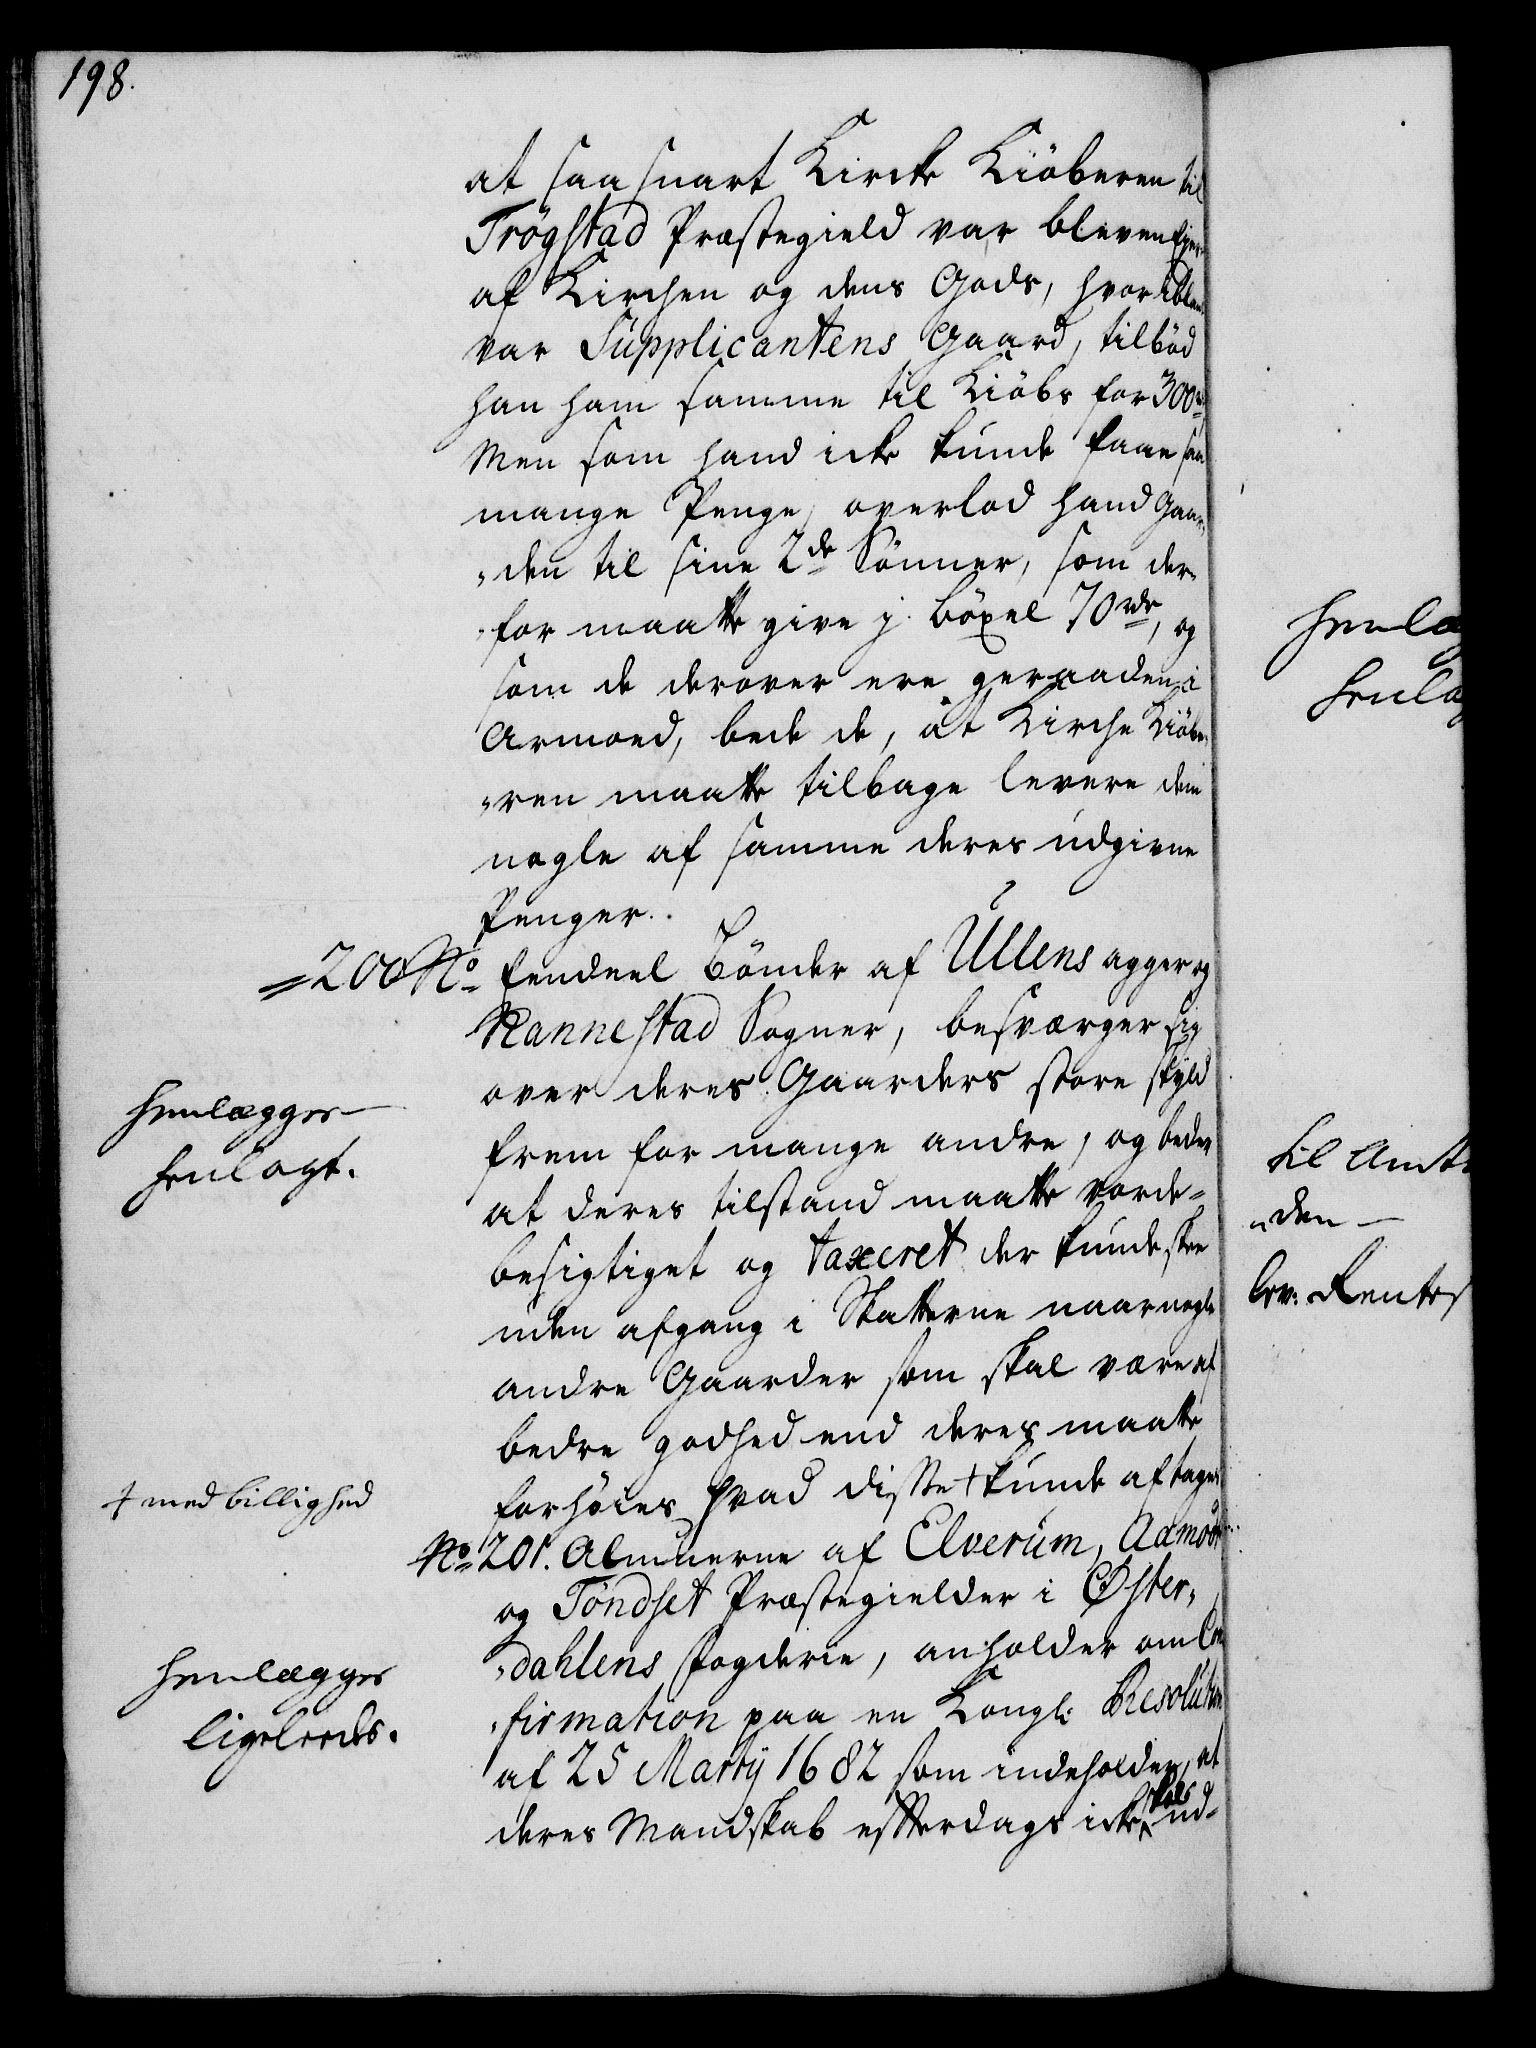 198.
at saa snart Kircke Kiöberen til
Trögstad Præstegield var bleven Ejer
af Kirchen og dens Gods, hvor iblant
var Supplicantens Gaard, tilböd
han ham samme til Kiöbs for 300 rdr
Men som hand icke kunde faae saa
mange Penge, overlod hand Gaar,,
,,den til sine 2de Sönner, som der,,
,,for maatte give j böxel 70 rdr, og
som de derover ere geraaden i
Armoed, bede de, at Kirche Kiöbe,,
,,ren maatte tilbage levere dem
nogle af samme deres udgivne
Penger.
=200 No Eendeel Bönder af Ullens agger og
Nannestad Sogner, besværger sig
over deres Gaarders store skyld
Henlægges
henlagt.
frem for mange andre, og beder
at deres tilstand maatte vorde=
besigtiget og taxeret der kunde skee
uden afgang i Skatterne naar nogle
andre Gaarder som skal være af
bedre godhed end deres maatte
forhöies hvad disse + kunde aftages
+ med billighed
No 201. Almuerne af Elverum, Aamodt
og Töndset Præstegielder i Öster,,
,,dahlens fogderie, anholder om Con
Henlægges
ligeleedes.
,,firmation paa en Kongl: Resolution
af 25 Martij 1682 som indeholder, at
deres Mandskab efterdags icke skal ud-
Henlæg
henlag
til Amtm
,,den
lev: Rentes